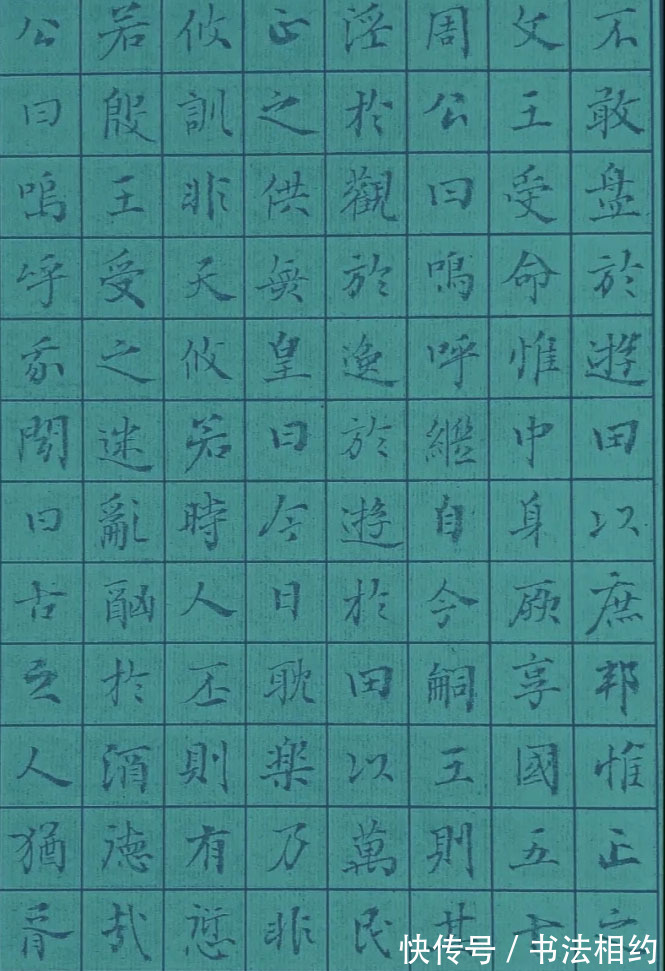 不敢盘於遊田以庶邦惟正
文王受命惟中身厥享國五十
周公曰嗚呼繼自今嗣王則其
淫於觀於逸於遊於田以萬民
正之供無皇曰今日耽楽乃非
攸訓非天攸若時人丕則有愆
若殷王受之迷亂酗於酒德哉
公曰嗚呼我聞曰古之人猶胥
快传号 / 书法相约